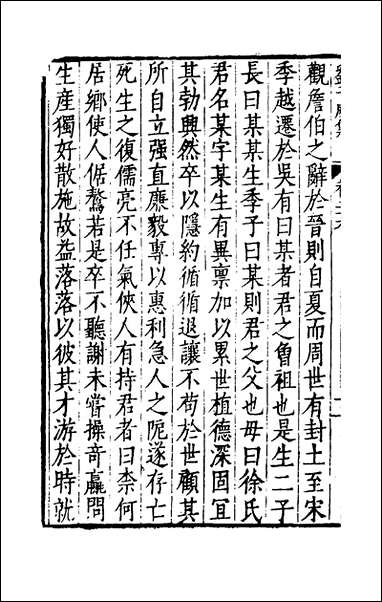 觀詹伯之辭於晉則自夏而周世有封土至宋
季越遷於吳有曰某者君之曾祖也是生二子
長曰某某生季子曰某則君之父也毋曰徐氏
君名某字某生有異禀加以累世植德深固宜
其勃興然卒以隱約循循退讓不苟於世顧其
所自立强直應毅專以惠利急人之阨遂存亡
死生之復儒亮不任氣俠人有持君者曰柰何
居鄉使人倨驁若是卒不聽謝未嘗操奇羸問
生産獨好散施故益落落以彼其才游於時就